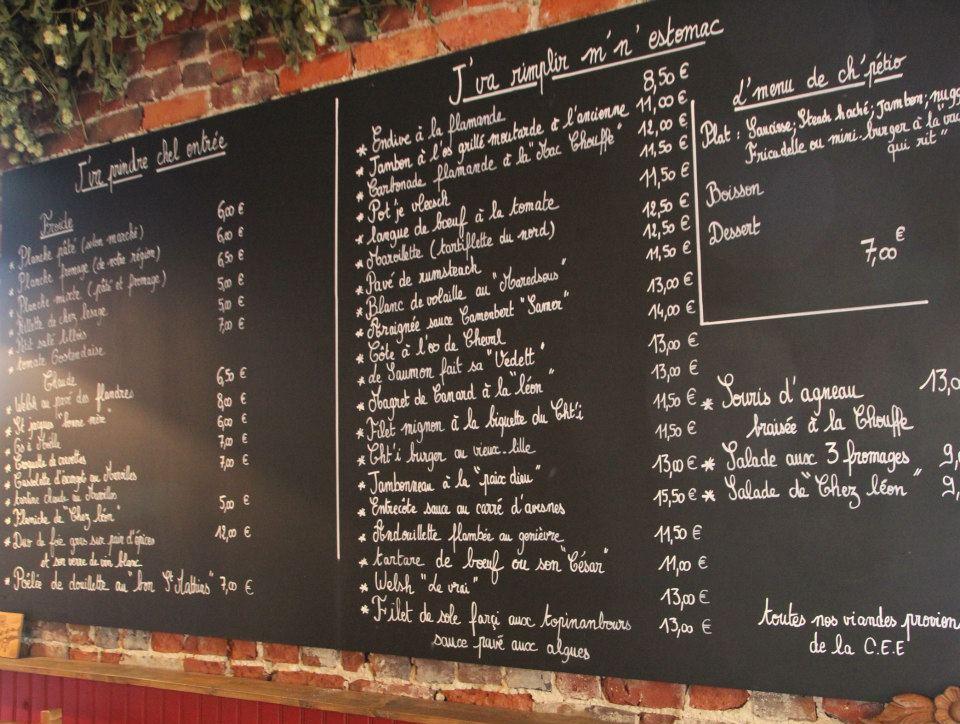 J'va prindre chel entrée
Froide
* Planche pâté (selon marché) 6,00 €
* Planche fromage (de notre région) 6,00 €
* Planche mixte (pâté et fromage) 6,50 €
* Rillette de chez lesage 5,00 €
* Petit salé lillois 5,00 €
* tomate Oostendaise 7,00 €
Chaude
* Welsh ou pavé des flandres 6,50 €
* St jacques "bonne mère" 8,00 €
* Os à Moëlle 6,00 €
* Croquette de crevettes 7,00 €
* Cassolette d'escargot au Maroilles 7,00 €
* tartine chaude au Maroilles
* Flamiche de "Chez léon" 5,00 €
* Duo de foie gras sur pain d'épices 12,00 €
et son verre de vin blanc
* Poêlée de douillette au "bon St Mathieu" 7,00 €
J'va rimplir m'n' estomac
* Endive à la flamande 8,50 €
* Jambon à l'os grillé moutarde à l'ancienne 11,00 €
* Carbonade flamande à la "Mac Chouffe" 12,00 €
* Pot'je vleesch 11,50 €
* langue de bœuf à la tomate 11,50 €
* Maroillette (tartiflette du nord) 12,50 €
* Pavé de rumsteack 12,50 €
* Blanc de volaille au "Maredsous" 11,50 €
* Araignée sauce Camembert "Samer" 13,00 €
* Côte à l'os de Cheval 14,00 €
* de Saumon fait sa "Vedett" 13,00 €
* Magret de Canard à la "léon" 13,00 €
* Filet mignon à la biquette du Cht'i 11,50 €
* Cht'i burger au vieux-lille 11,50 €
* Jambonneau à la "paix dieu" 13,00 €
* Entrecôte sauce au carré d'avesnes 15,50 €
* Andouillette flambée au genièvre 11,50 €
* tartare de bœuf ou son "César" 11,00 €
* Welsh "Le vrai" 13,00 €
* Filet de sole farçi aux topinanbours 13,00 €
sauce pavé aux algues
L'menu de ch'pétio
Plat : Saucisse; Steak haché; Jambon; nugg
Fricadelle ou mini-burger à la "vac
qui rit"
Boisson
Dessert
7,00 €
* Souris d'agneau 13,0
braisée à la Chouffe
* Salade aux 3 fromages 9,
* Salade de "Chez léon" 9,
toutes nos viandes provien
de la C.E.E